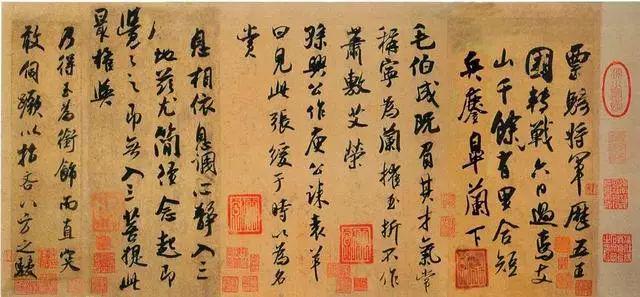 票騎將軍歷五王
國轉戰六日過焉支
山千餘有里合短
兵鏖皋蘭下
毛伯成既負其才氣常
稱寧為蘭摧玉折不作
蕭敷艾榮
孫興公作庾公誄袁羊
曰見此張緩于時以為名
賞
息相依息調心靜入三
地茲尤簡徑念起即
覺之之即無入三菩提此
最捷矣
乃得玉為銜飾而直突
敢伺蹶以指吞八方之駿